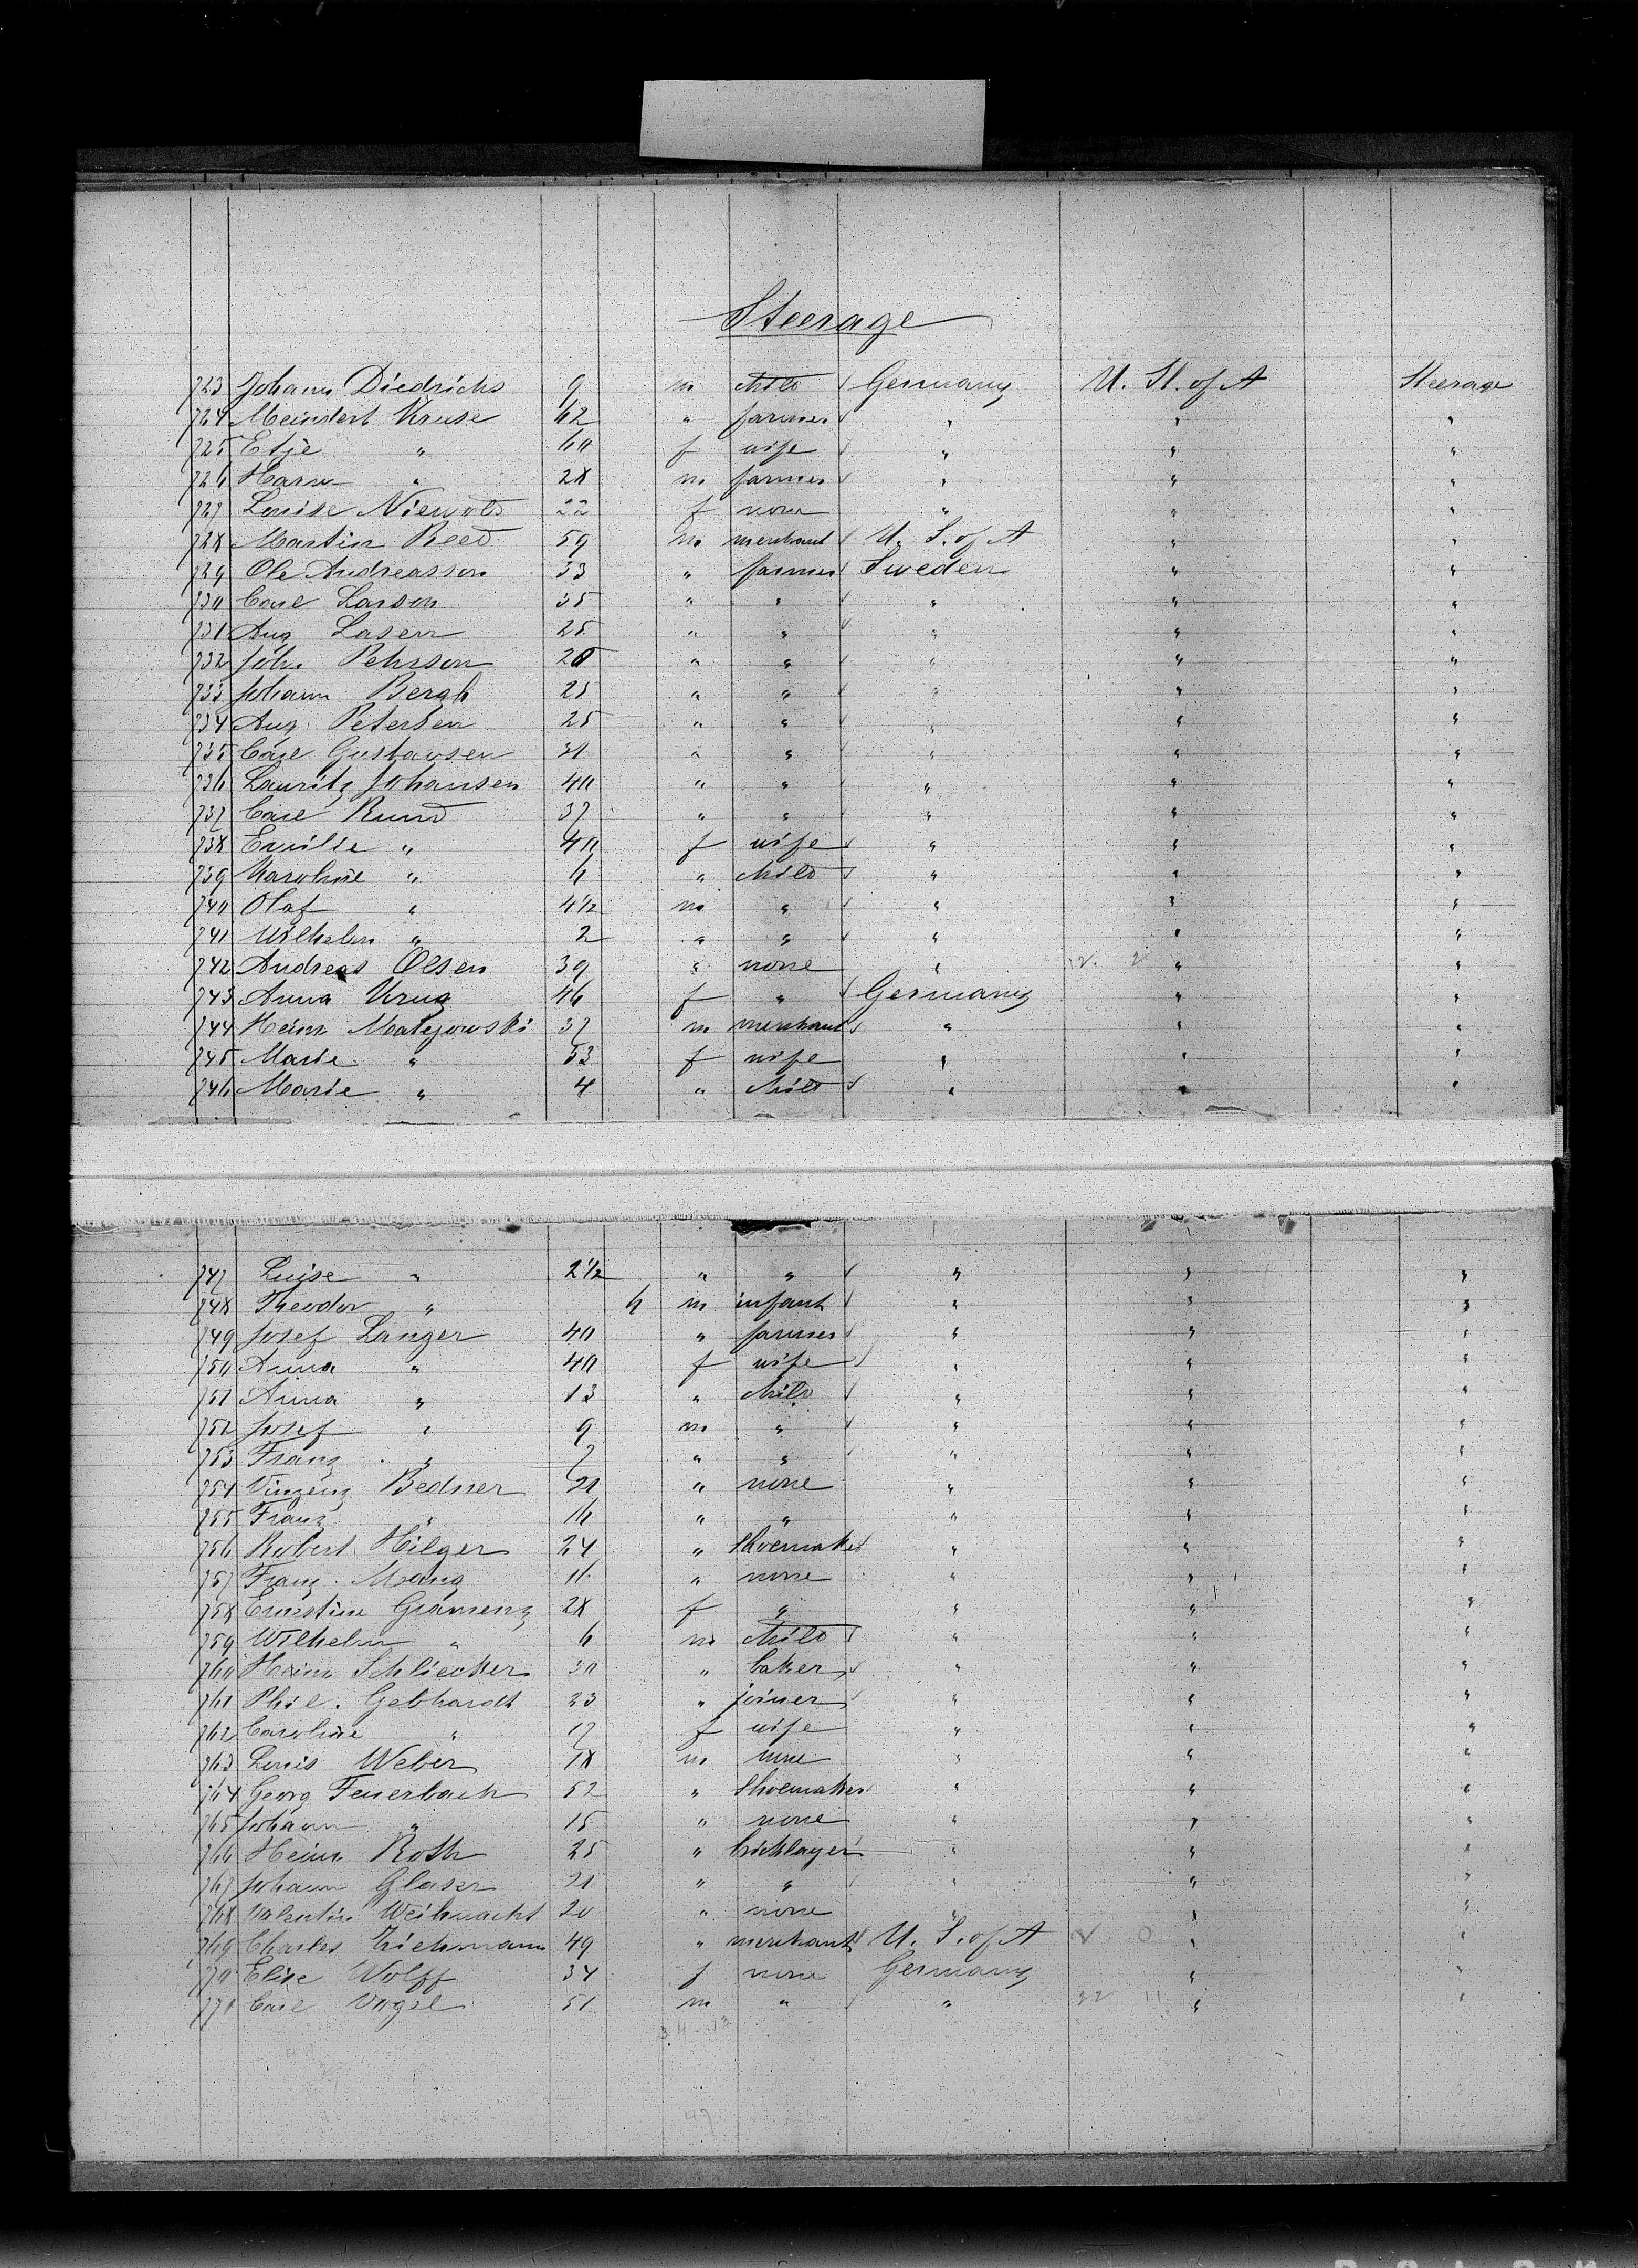 Steerage
723 Johann Diedrichs 9 m child Germany U. St. of A Steerage
724 Meindert Kruse 62 " farmer " " "
725 Etje " 60 f wife " " "
726 Harm " 28 m farmer " " "
727 Louise Niewold 22 f none " " "
728 Martin Reed 59 m merchant U. S. of A " "
729 Ole Andreasson 33 " farmer Sweden " "
730 Carl Larson 35 " " " " "
731 Aug Lasen 25 " " " " "
732 John Pehrson 20 " " " " "
733 Johann Bergh 25 " " " " "
734 Aug. Petersen 25 " " " " "
735 Carl Gustavsen 31 " " " " "
736 Lauritz Johansen 40 " " " " "
737 Carl Rund 37 " " " " "
738 Emilie " 40 f wife " " "
739 Karoline " 6 " child " " "
740 Olaf " 4 1/2 m " " " "
741 Wilhelm " 2 " " " " "
742 Andreas Olsen 39 " none " " "
743 Anna Krug 46 f " Germany " "
744 Heinr Matejowski 37 m merchant " " "
745 Marie " 33 f wife " " "
746 Marie " 4 " child " " "
747 Luise " 2 1/2 " " " " "
748 Theodor " 6 m infant " " "
749 Josef Langer 40 " farmer " " "
750 Anna " 40 f wife " " "
751 Anna " 13 " child " " "
752 Josef " 9 m " " " "
753 Franz " 7 " " " " "
754 Vinzenz Bedner 21 " none " " "
755 Franz " 16 " " " " "
756 Robert Hilger 24 " shoemaker " " "
757 Franz Mang 16 " none " " "
758 Ernestine Gramenz 28 f " " " "
759 Wilhelm " 6 m child " " "
760 Heinr Schliecker 30 " baker " " "
761 Phil. Gebhardt 23 " joiner " " "
762 Caroline " 17 f wife " " "
763 Louis Weber 18 m none " " "
764 Georg Feuerbach 52 " shoemaker " " "
765 Johann " 15 " none " " "
766 Heinr Roth 25 " bricklayer " " "
767 Johann Glaser 21 " " " " "
768 Valentin Weihnacht 20 " none " " "
769 Charles 49 " merchant U. S. of A " "
770 Elise Wolff 34 f none Germany " "
771 Carl Vogel 51 m " " " "